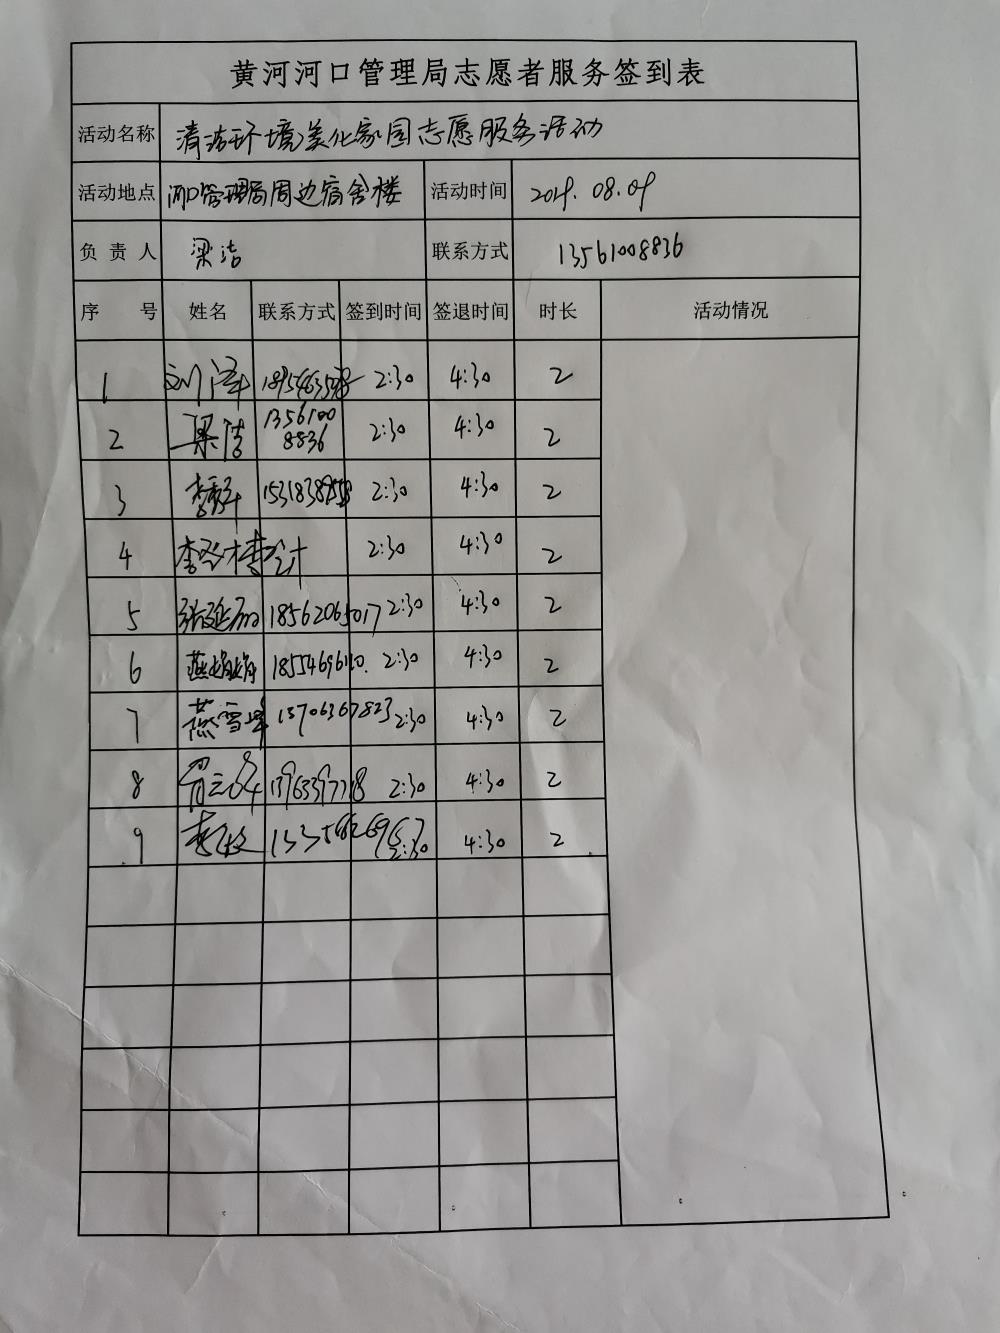 黄河河口管理局志愿者服务签到表
活动名称 清洁环境美化家园志愿服务活动
活动地点 河口管理局周边宿舍楼 活动时间 2019.08.09
负责人 梁洁 联系方式 13561008836
序号 姓名 联系方式 签到时间 签退时间 时长 活动情况
1 刘泽 2:30 4:30 2
2 梁洁 1356100
8836 2:30 4:30 2
3 2:30 4:30 2
4 2:30 4:30 2
5 18562065017 2:30 4:30 2
6 燕娟娟 2:30 4:30 2
7 燕雪峰 15706367823 2:30 4:30 2
8 13963397718 2:30 4:30 2
9 2:30 4:30 2